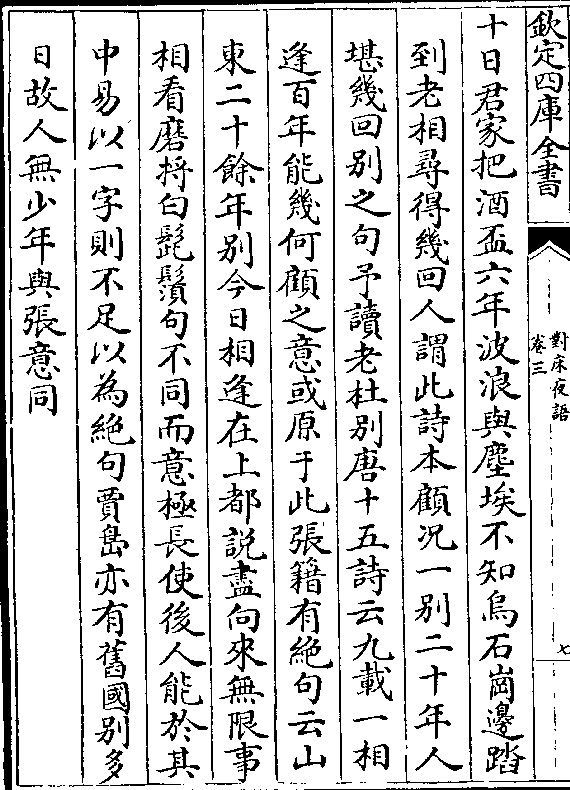 欽定四庫全書
對床夜語
卷三
七
十日君家把酒盃六年波浪與塵埃不知烏石崗邊踏
到老相尋得幾回人謂此詩本顧况一别二十年人
堪幾回别之句予讀老杜别唐十五詩云九載一相
逢百年能幾何顧之意或原于此張籍有絶句云山
東二十餘年别今日相逢在上都說盡向來無限事
相看磨捋白髭鬚句不同而意極長使後人能於其
中易以一字則不足以為絶句賈島亦有舊國别多
日故人無少年與張意同